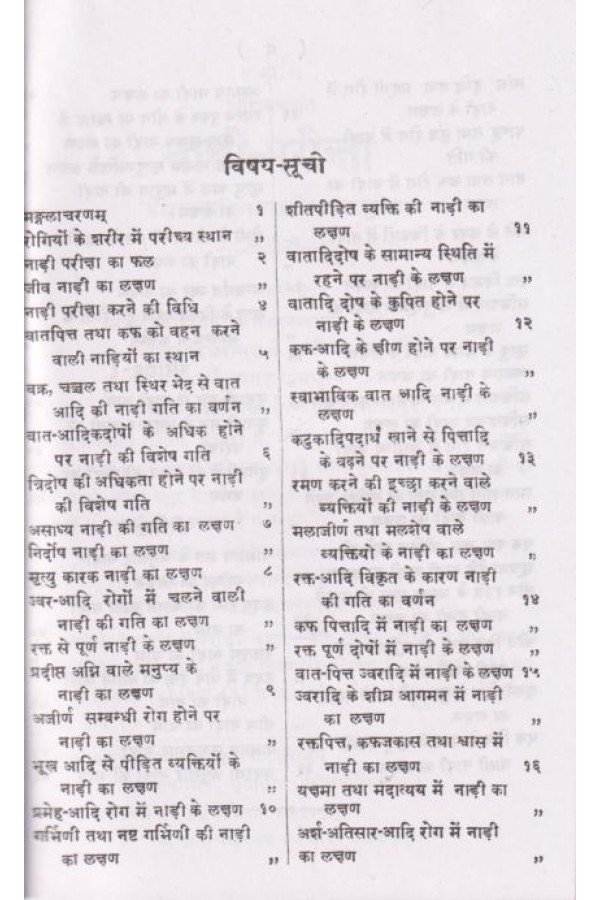 विषय-सूची
मङ्गलाचरणम् १
रोगियों के शरीर में परीक्ष्य स्थान ,,
नाड़ी परीक्षा का फल २
जीव नाड़ी का लक्षण ,,
नाड़ी परीक्षा करने की विधि ४
वातपित्त तथा कफ को वहन करने
वाली नाड़ियों का स्थान ५
वक्र, चञ्चल तथा स्थिर भेद से वात
आदि की नाड़ी गति का वर्णन ,,
वात-आदिकदोषों के अधिक होने
पर नाड़ी की विशेष गति ६
त्रिदोष की अधिकता होने पर नाड़ी
की विशेष गति ,,
असाध्य नाड़ी की गति का लक्षण ७
निर्दोष नाड़ी का लक्षण ,,
मृत्यु कारक नाड़ी का लक्षण ८
ज्वर-आदि रोगों में चलने वाली
नाड़ी की गति का लक्षण ,,
रक्त से पूर्ण नाड़ी के लक्षण ,,
प्रदीप्त अग्नि वाले मनुष्य के
नाड़ी का लक्षण ९
अजीर्ण सम्बन्धी रोग होने पर
नाड़ी का लक्षण ,,
भूख आदि से पीड़ित व्यक्तियों के
नाड़ी का लक्षण ,,
प्रमेह-आदि रोग में नाड़ी के लक्षण १०
गर्भिणी तथा नष्ट गर्भिणी की नाड़ी
का लक्षण ,,
शीतपीड़ित व्यक्ति की नाड़ी का
लक्षण ११
वातादिदोष के सामान्य स्थिति में
रहने पर नाड़ी के लक्षण ,,
वातादि दोष के कुपित होने पर
नाड़ी के लक्षण १२
कफ-आदि के क्षीण होने पर नाड़ी
के लक्षण ,,
स्वाभाविक वात आदि नाड़ी के
लक्षण ,,
कटुकादिपदार्थ खाने से पित्तादि
के बढ़ने पर नाड़ी के लक्षण १३
रमण करने की इच्छा करने वाले
व्यक्तियों की नाड़ी के लक्षण ,,
मलाजीर्ण तथा मलशेष वाले
व्यक्तियो के नाड़ी का लक्षण ,,
रक्त-आदि विकृत के कारण नाड़ी
की गति का वर्णन १४
कफ पित्तादि में नाड़ी का लक्षण ,,
रक्त पूर्ण दोषों में नाड़ी के लक्षण ,,
वात-पित्त ज्वरादि में नाड़ी के लक्षण १५
ज्वरादि के शीघ्र आगमन में नाड़ी
का लक्षण ,,
रक्तपित्त, कफजकास तथा श्वास में
नाड़ी का लक्षण १६
यक्ष्मा तथा मदात्यय में नाड़ी का
लक्षण ,,
अर्श-अतिसार-आदि रोग में नाड़ी
का लक्षण ,,